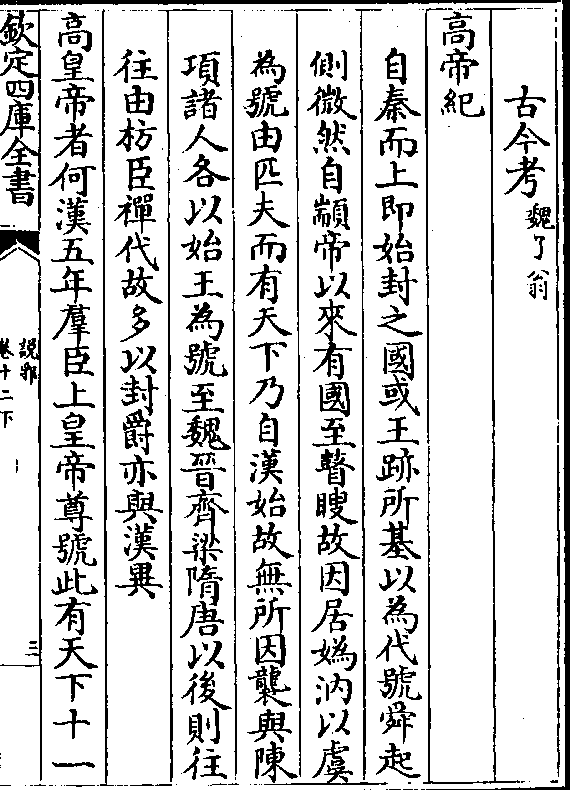 古今考魏了翁
高帝紀
自秦而上即始封之國或王跡所基以為代號舜起
側微然自顓帝以來有國至瞽瞍故因居媯汭以虞
為號由匹夫而有天下乃自漢始故無所因襲與陳
項諸人各以始王為號至魏晉齊梁隋唐以後則往
往由枋臣禪代故多以封爵亦與漢異
高皇帝者何漢五年羣臣上皇帝尊號此有天下十一
欽定四庫全書
說郛
卷十二下
三